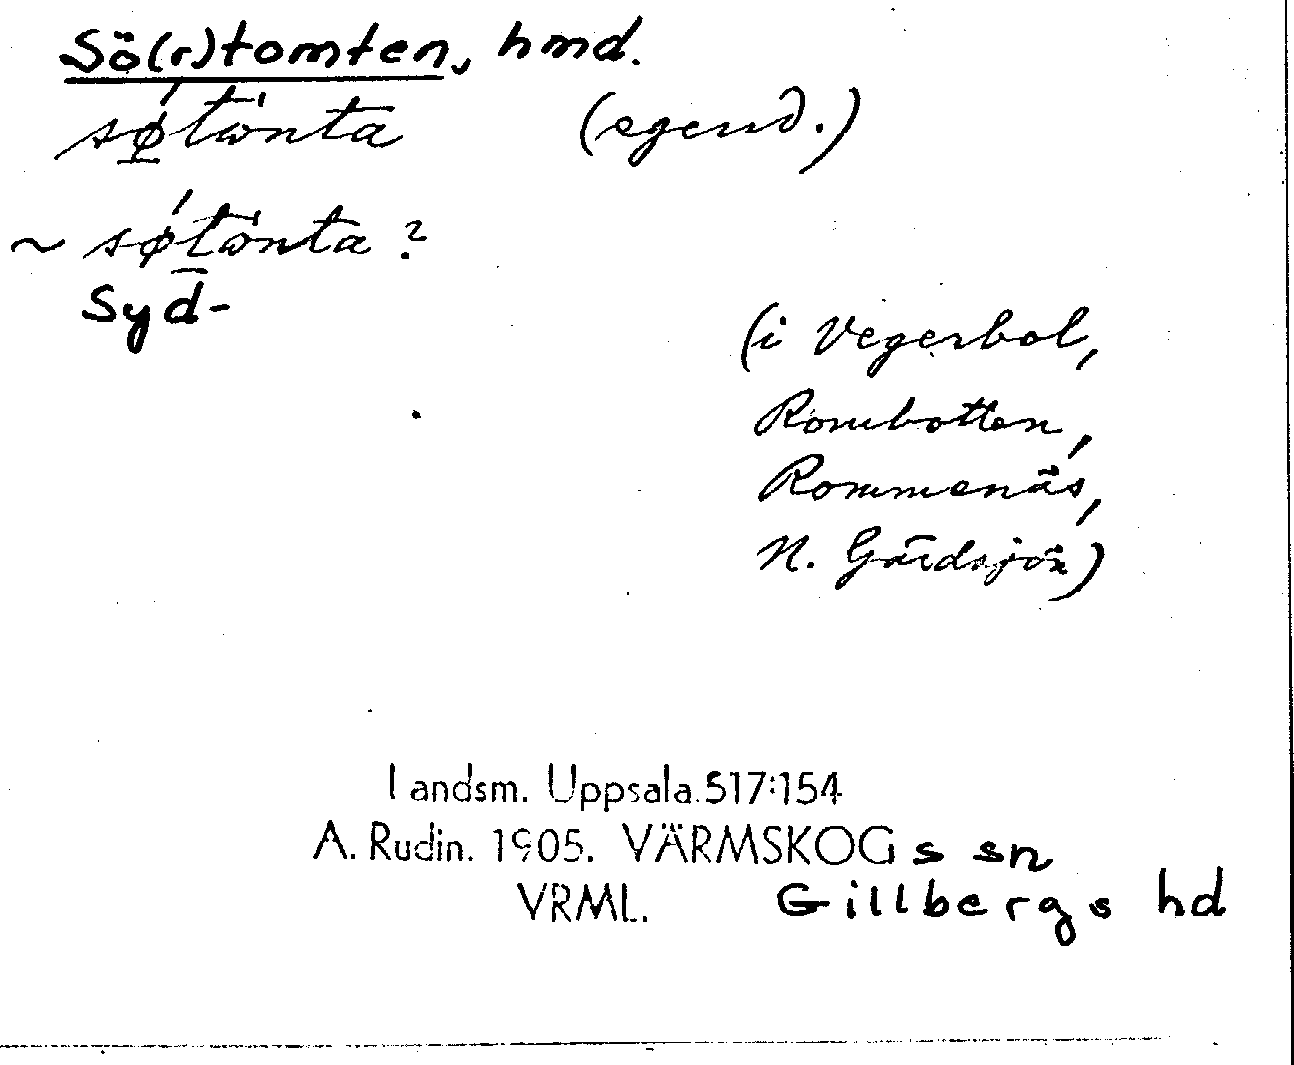 Sö(r)tomten, hmd.
sǿ̱tὼnta (egend.)
~ sǿtὼnta ?
Syd-
(i Vegerbol,
Rombotten,
Rommenäs,
N. Gärdsjön)
Landsm. Uppsala.517:154
A. Rudin. 1905. VÄRMSKOGs sn
VRML. Gillbergs hd